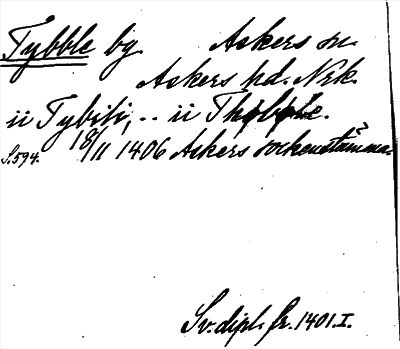 Tybble by Askers sn.
Askers hd. Nrk.
ii Tybili, .. ii
S. 594. 18/11 1406 Askers sockenstämma.
Sv. dipl. fr. 1401. I.